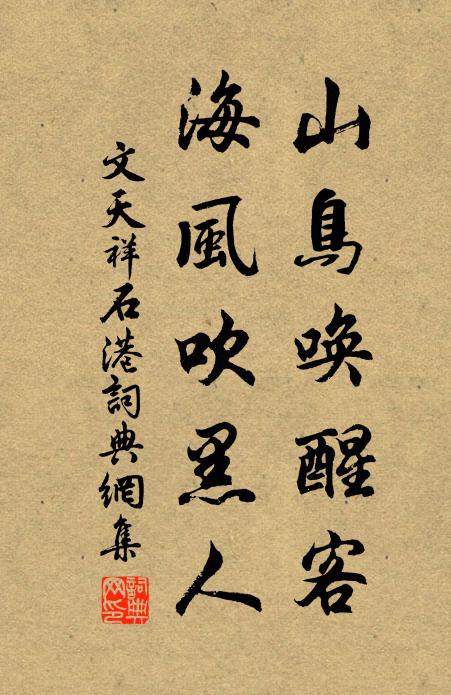 山鳥喚醒客
海風吹黑人
文天祥石港詞典網集
詞典网印